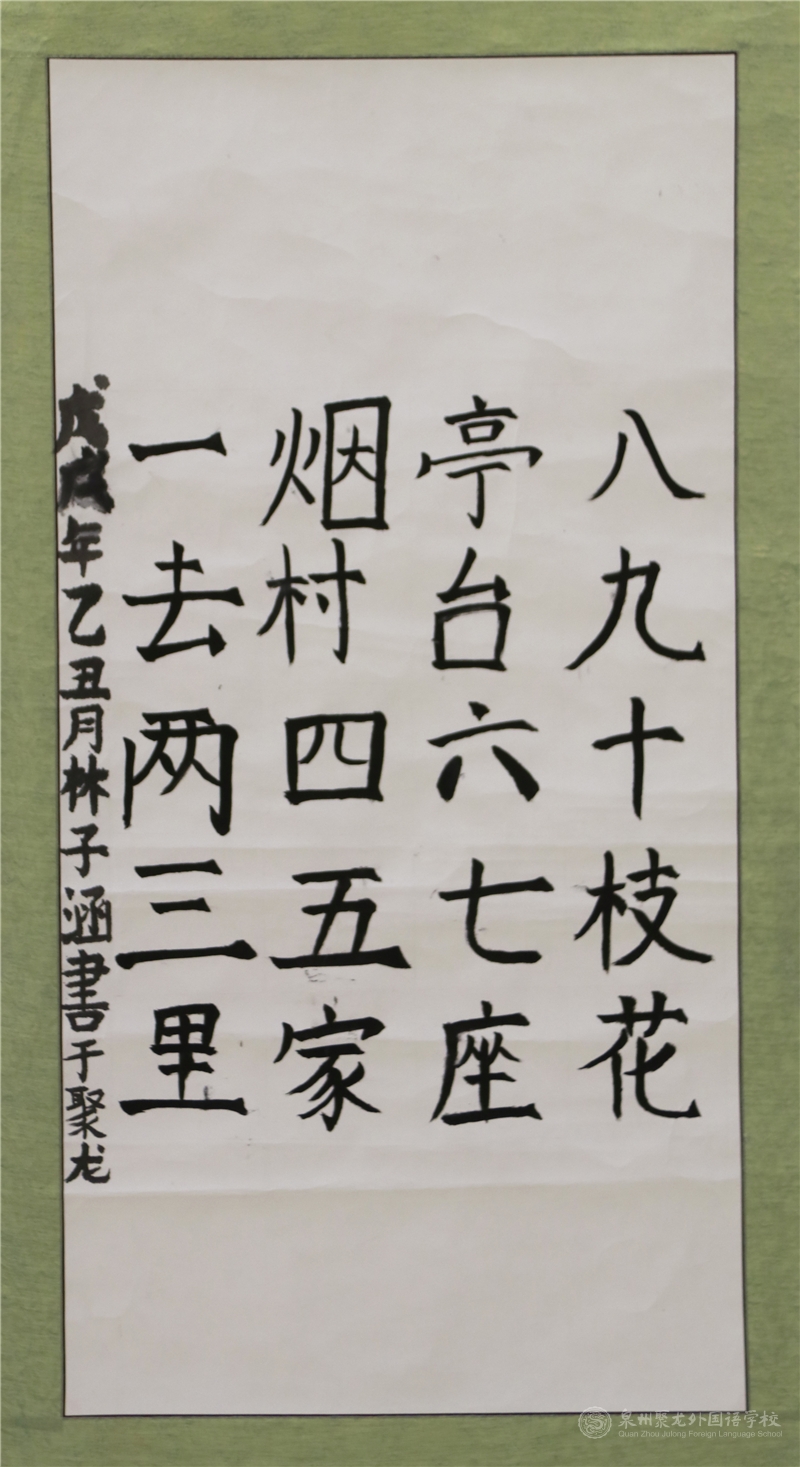 八九十枝花
亭台六七座
烟村四五家
一去两三里
戊戌年乙丑月林子涵書于聚龙
泉州聚龙外国语学校
Quan Zhou Julong Foreign Language School